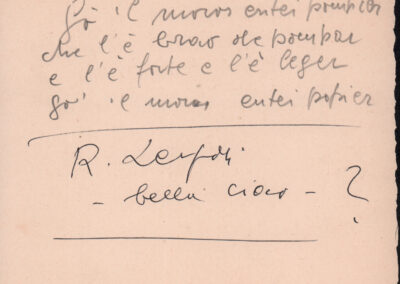 Gò 'l moros entei pompier
che l'è brao de pompar
e l'è forte e l'è leger
gò 'l moros entei popier
R. Leydi
- bella ciao - ?